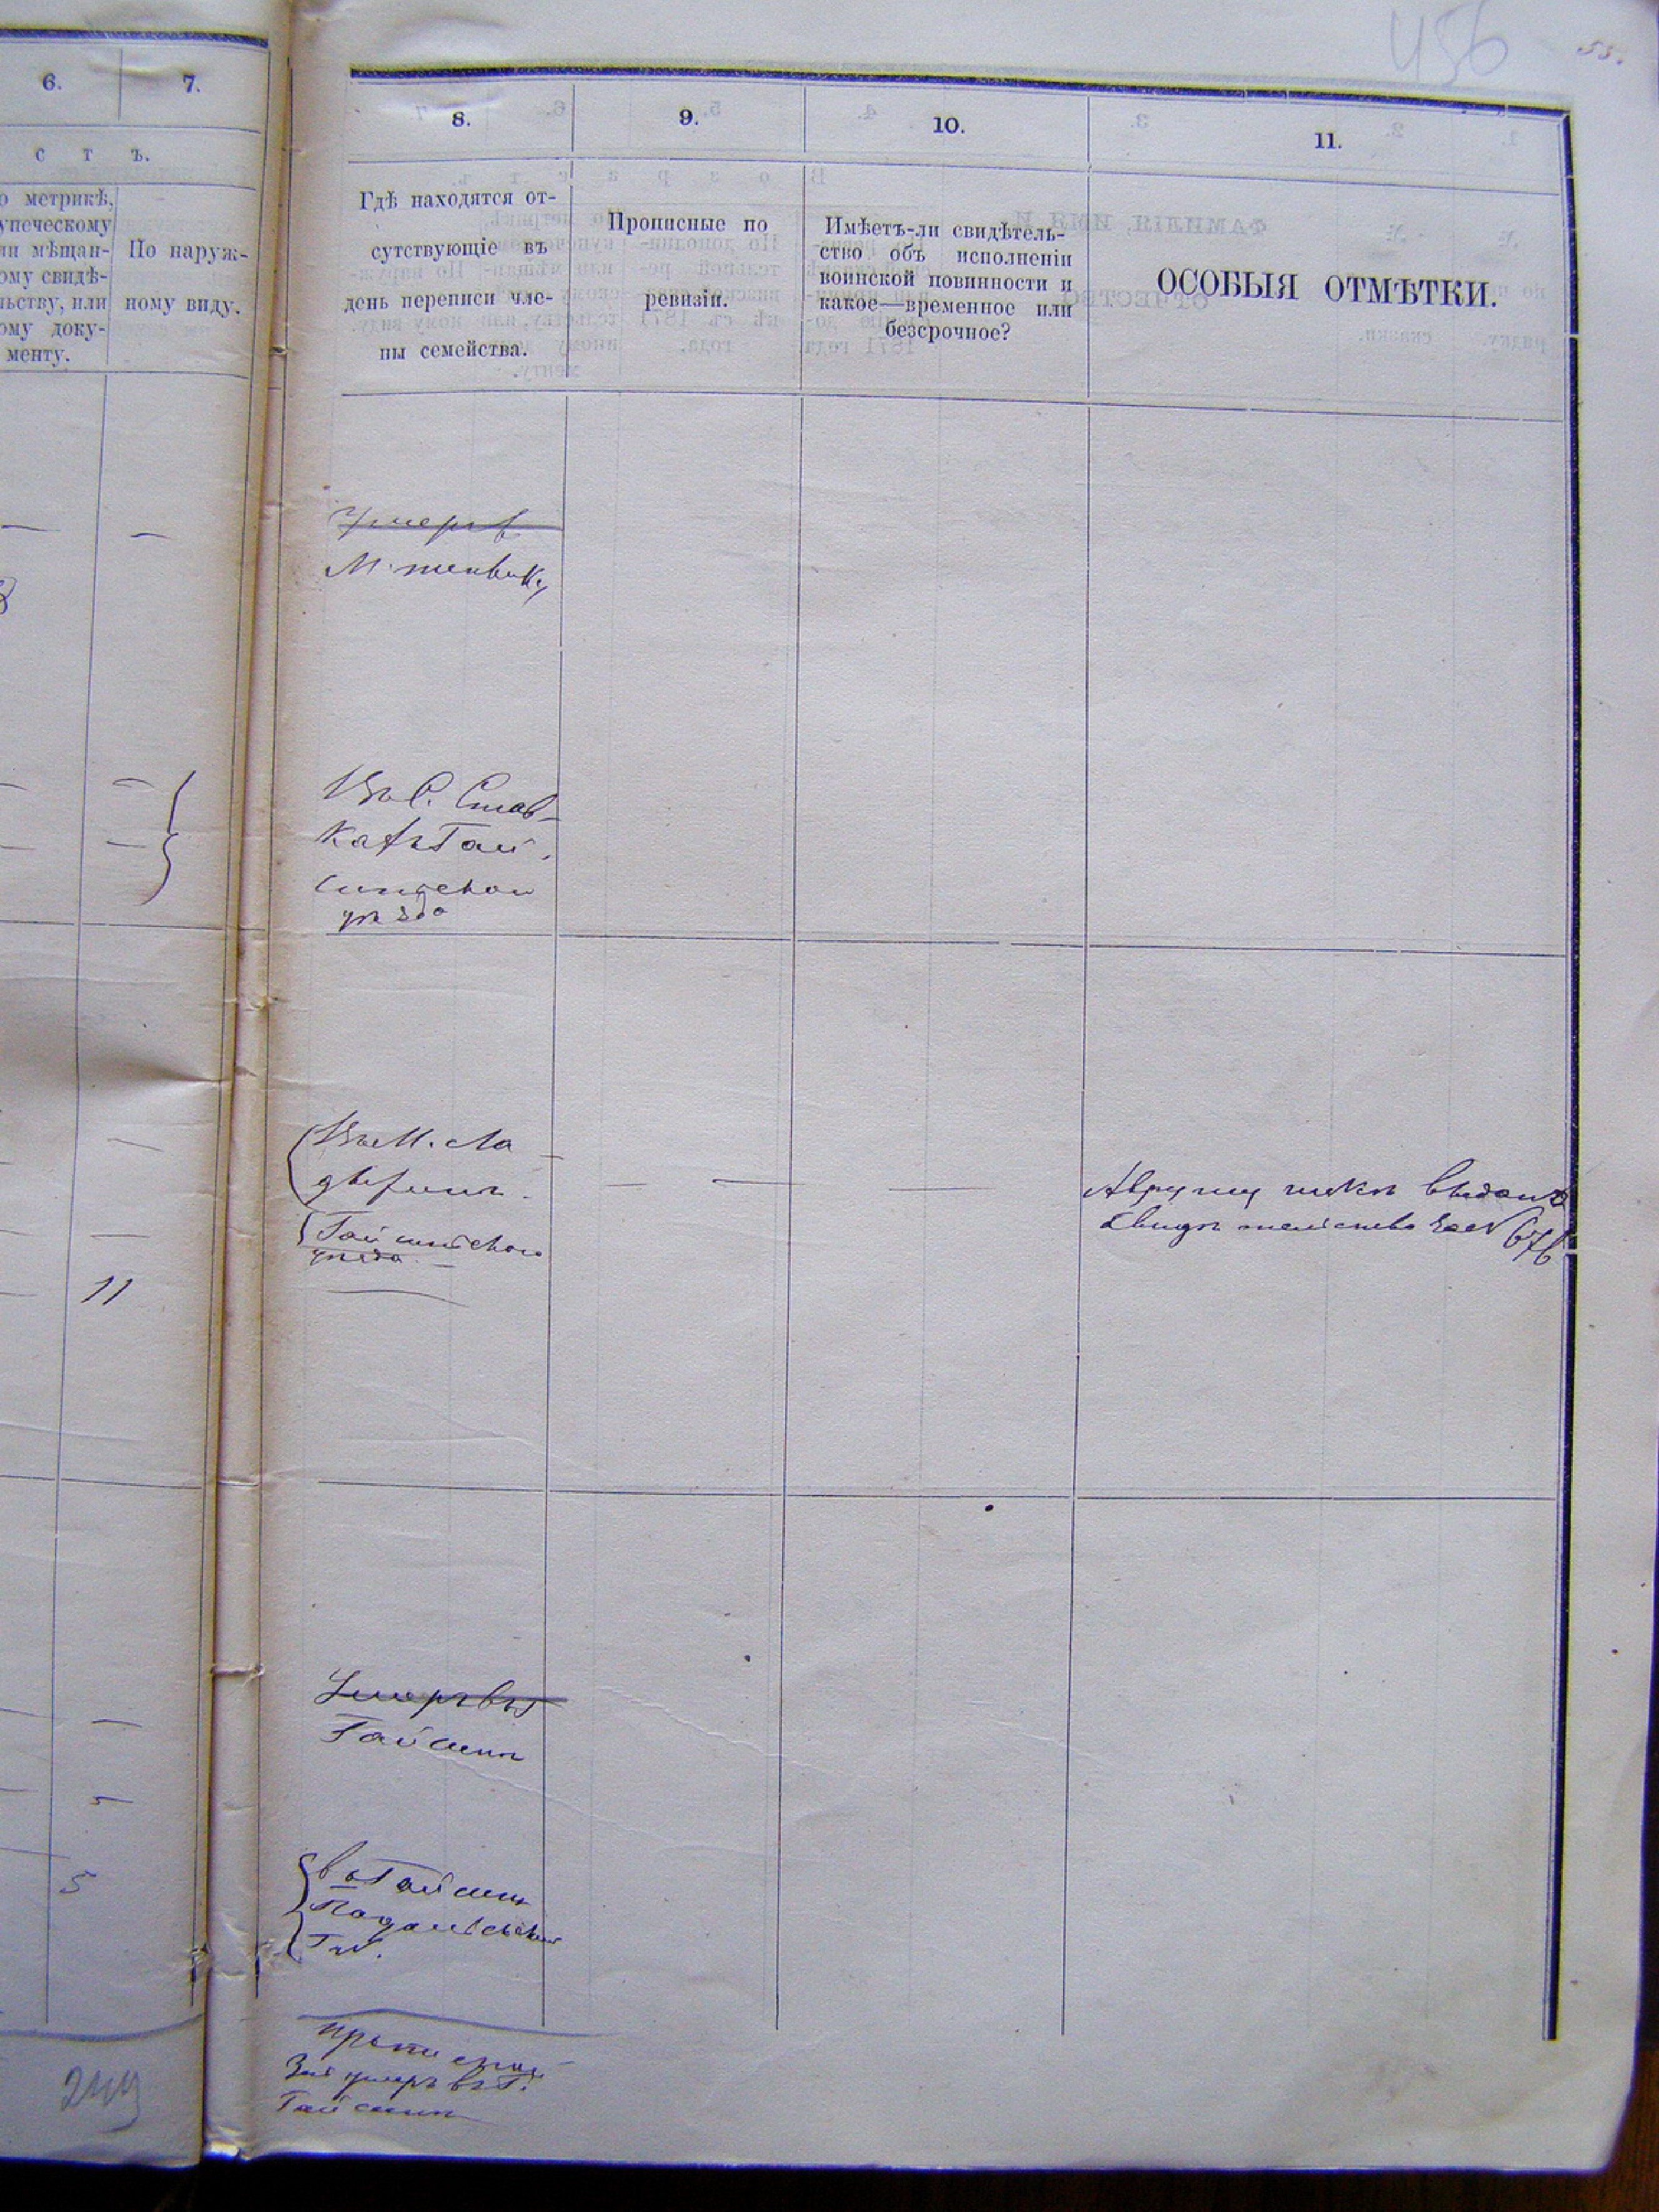 456
6.
7.
с т ъ.
о метрикѣ,
упеческому
ли мѣщан-
ому свидѣ-
льству, или
ому доку-
менту.
По наруж-
ному виду.
8.
9.
10.
11.
Гдѣ находятся от-
сутствующіе въ
день переписи чле-
ны семейства.
Прописные по
ревизіи.
Имѣетъ-ли свидѣтель-
ство объ исполненіи
воинской повинности и
какое—временное или
безсрочное?
ОСОБЫЯ ОТМѢТКИ.
Умеръ
Въ С. Став-
кахъ Гай-
синского
уѣзда
Въ М. Ла
дыжинъ
Гайсинского
уѣзда
выдано
свидѣтельство за № 676
11
Умеръ въ г
Гайсинъ
въ Гайсин
Подольской
Гу.
5
умеръ въ г.
Гайсинъ
244